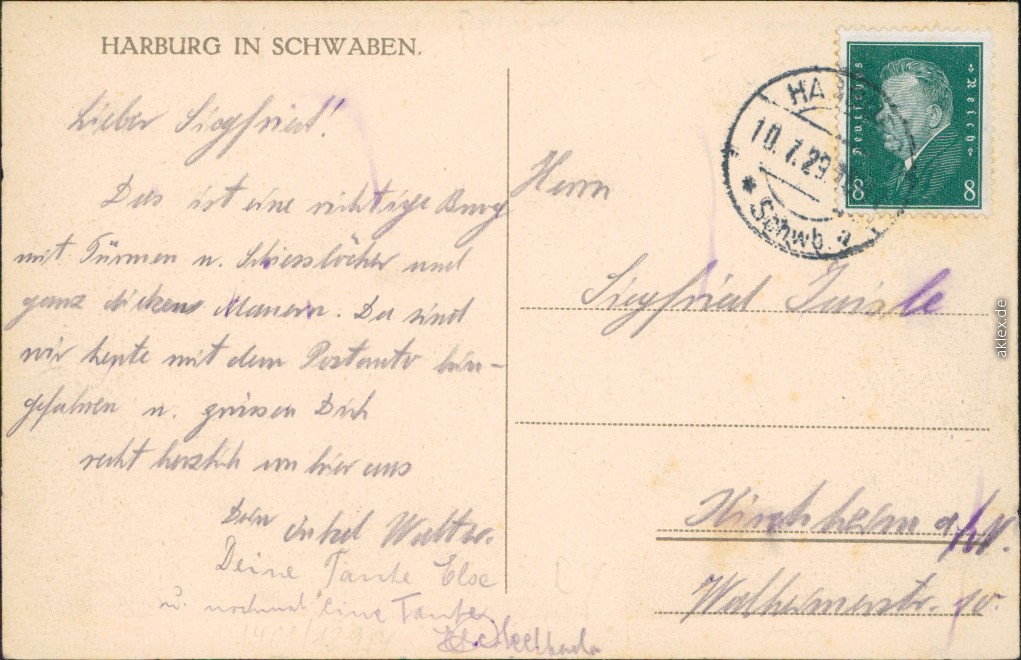 HARBURG IN SCHWABEN.
Lieber Siegfried!
Das ist eine richtige Burg
mit Türmen u. Schiesslöcher und
ganz dicken Mauern. Da sind
wir heute mit dem Postauto hin-
gefahren u. grüssen Dich
recht herzlich von hier aus
Dein Onkel Walter.
Deine Tante Else
u. nochmal eine Tante
Herrn
Siegfried
Kirchheim a/N.
10.7.29
Schwb.
Deutsches Reich
8 8
aklex.de